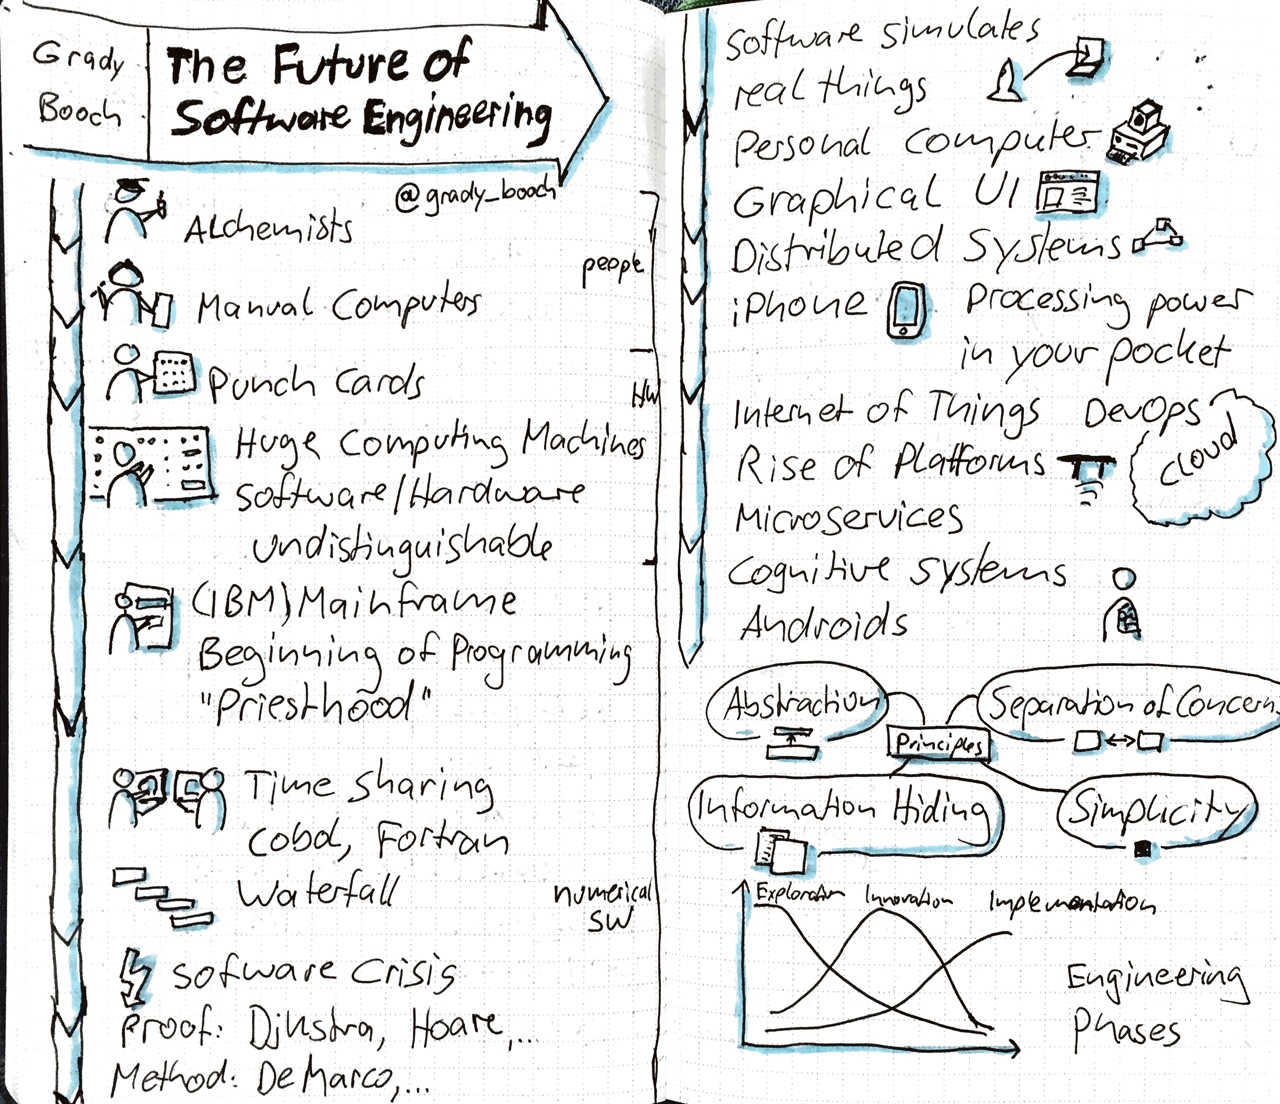 Grady
Booch
The Future of
Software Engineering
@grady_booch
Alchemists
people
Manual Computers
Punch Cards
HW
Huge Computing Machines
Software/Hardware
undistinguishable
(IBM) Mainframe
Beginning of Programming
"Priesthood"
Time Sharing
Cobol, Fortran
Waterfall
numerical
SW
Sofware Crisis
Proof: Djikstra, Hoare,...
Method: De Marco,...
Software simulates
real things
Personal Computer
Graphical UI
Distributed Systems
iPhone
Processing power
in your pocket
Internet of Things
DevOps
Rise of Platforms
Cloud
Microservices
Cognitive Systems
Androids
Abstraction
Separation of Concern
Principles
Information Hiding
Simplicity
Exploration
Innovation
Implementation
Engineering
Phases